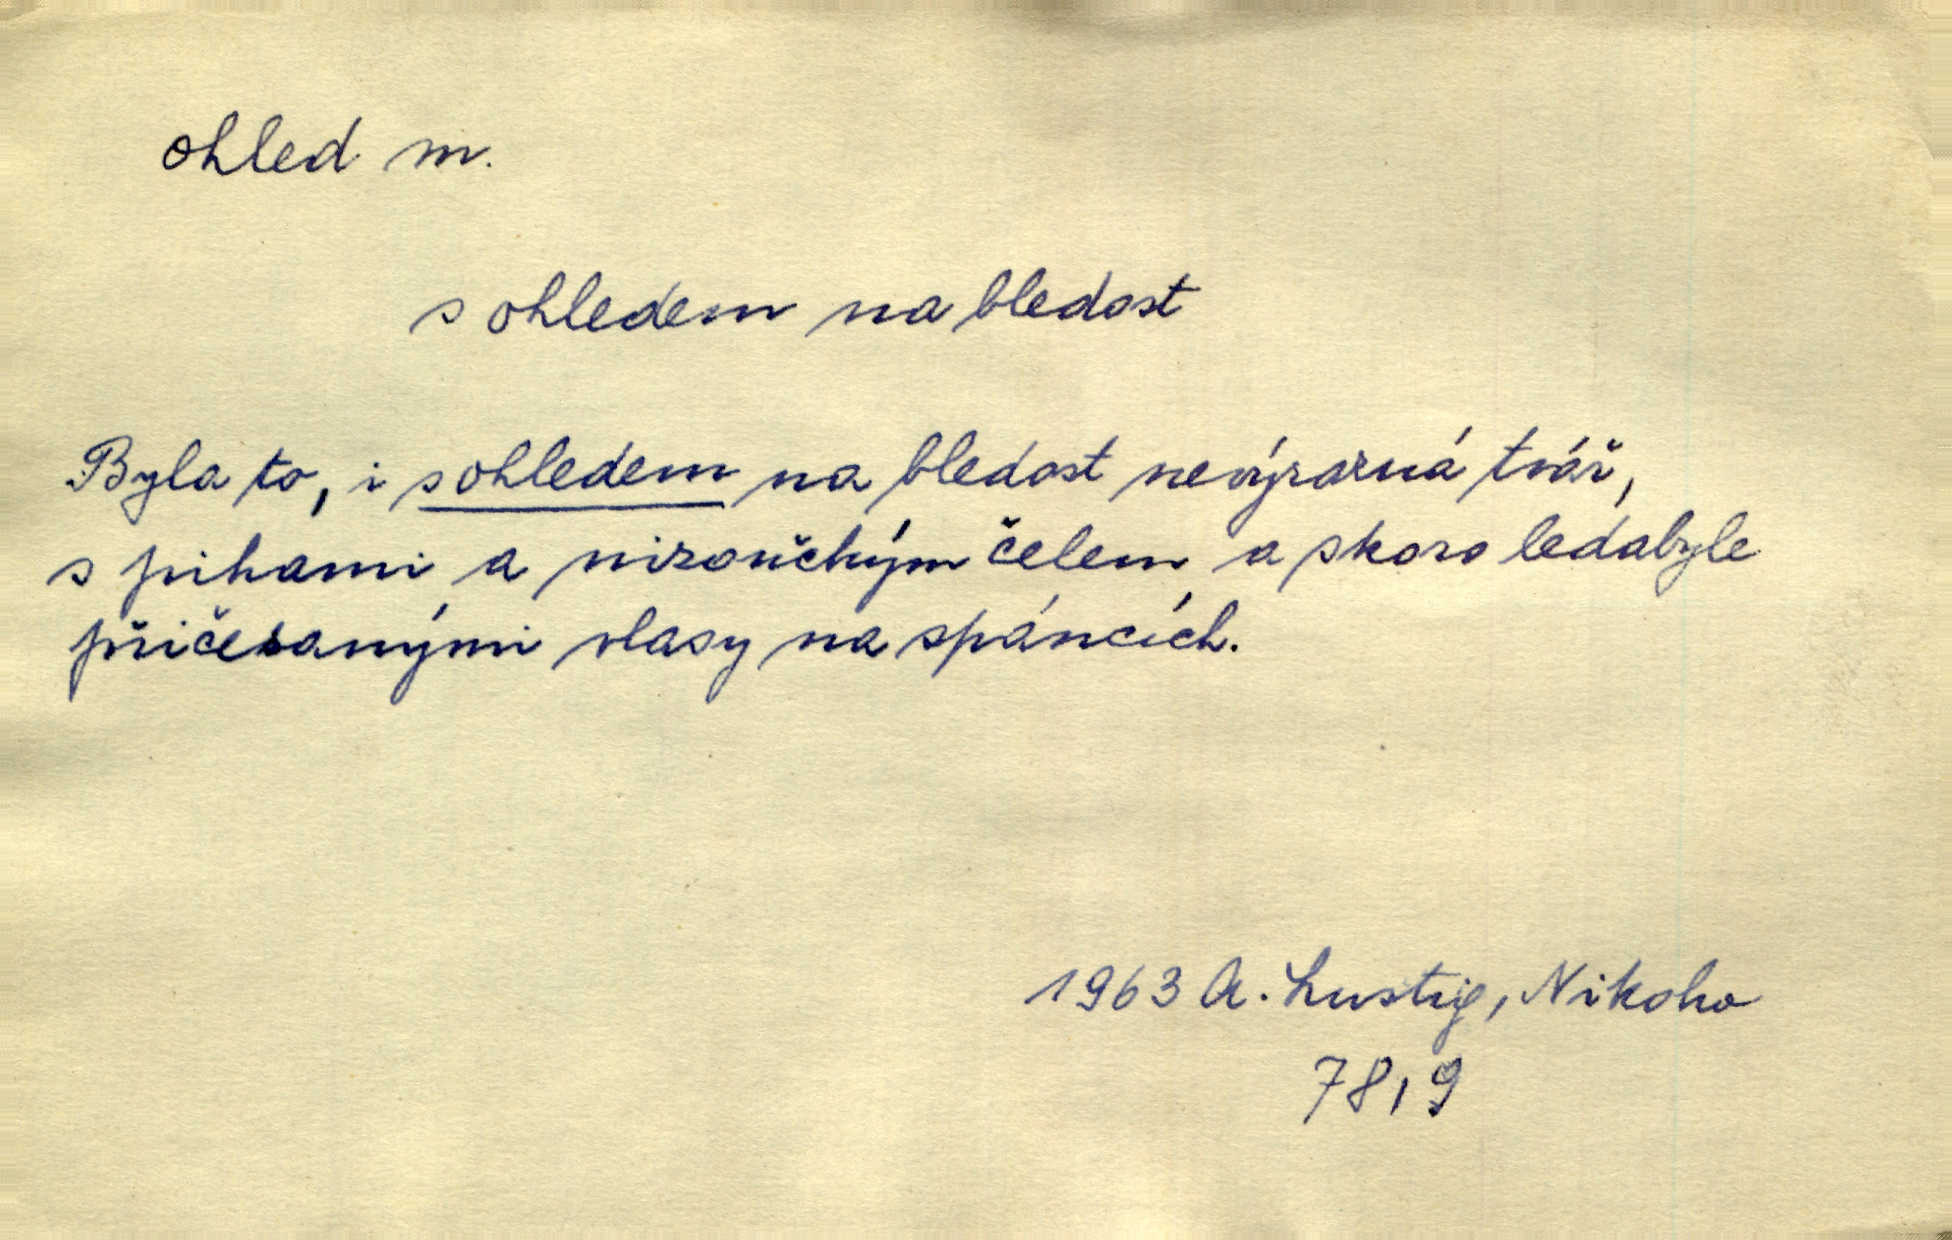 ohled m.
s ohledem na bledost
Byla to, i s ohledem na bledost nevýrazná tvář,
s pihami a nizoučkým čelem a skoro ledabyle
přičesanými vlasy na spáncích.
1963 A. Lustig, Nikoho
78,9